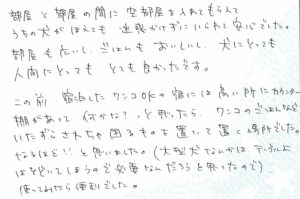 部屋と部屋の間に空部屋を入れてもらえて
うちの犬がほえても迷惑かけずにいられて安心でした。
部屋も広いし、ごはんもおいしいし、犬にとっても
人間にとっても とても良かったです。
この前、宿泊したワンコOKの宿には高い所にカウンター
棚があって 何かな?と思ったら、ワンコのごはんなど
いたずらされちゃ困るものを置いて置く場所でした。
なるほど!!と思いました。(大型犬なんかは、テーブルよ
はをどいてしまうので必要なんだろうと思ったので)
使ってみたら便利でした。